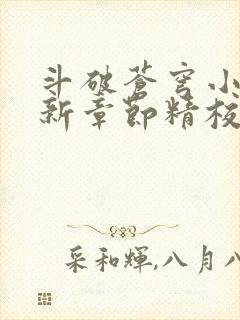 斗破蒼穹小
新章節精校
采和輝,八月八